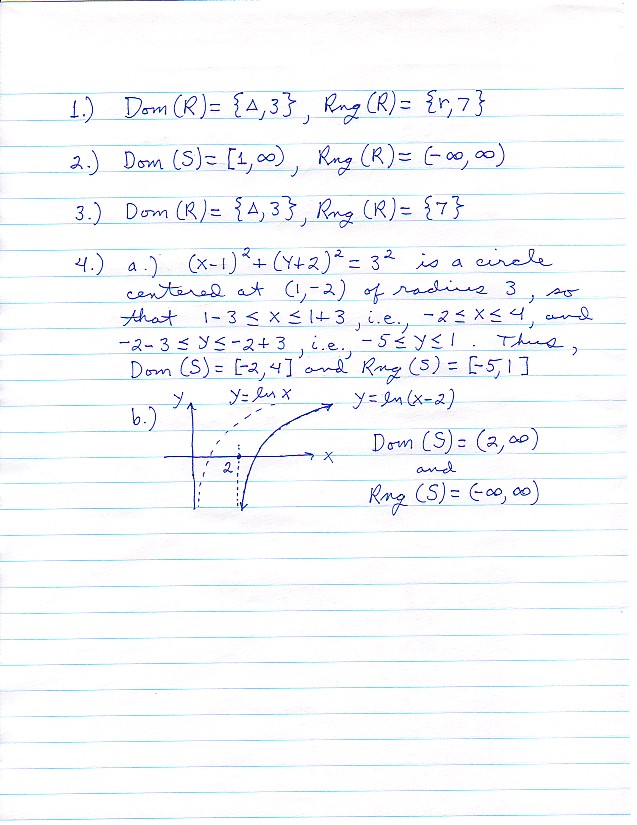 1.) Dom (R) = {Δ, 3}, Rng (R) = {r, 7}
2.) Dom (S) = [1, ∞), Rng (R) = (-∞, ∞)
3.) Dom (R) = {Δ, 3}, Rng (R) = {7}
4.) a.) (x-1)² + (y+2)² = 3² is a circle
centered at (1, -2) of radius 3, so
that 1-3 ≤ x ≤ 1+3, i.e., -2 ≤ x ≤ 4, and
-2-3 ≤ y ≤ -2+3, i.e., -5 ≤ y ≤ 1. Thus,
Dom (S) = [-2, 4] and Rng (S) = [-5, 1]
b.) y y = ln x y = ln (x-2)
x
2
Dom (S) = (2, ∞)
and
Rng (S) = (-∞, ∞)